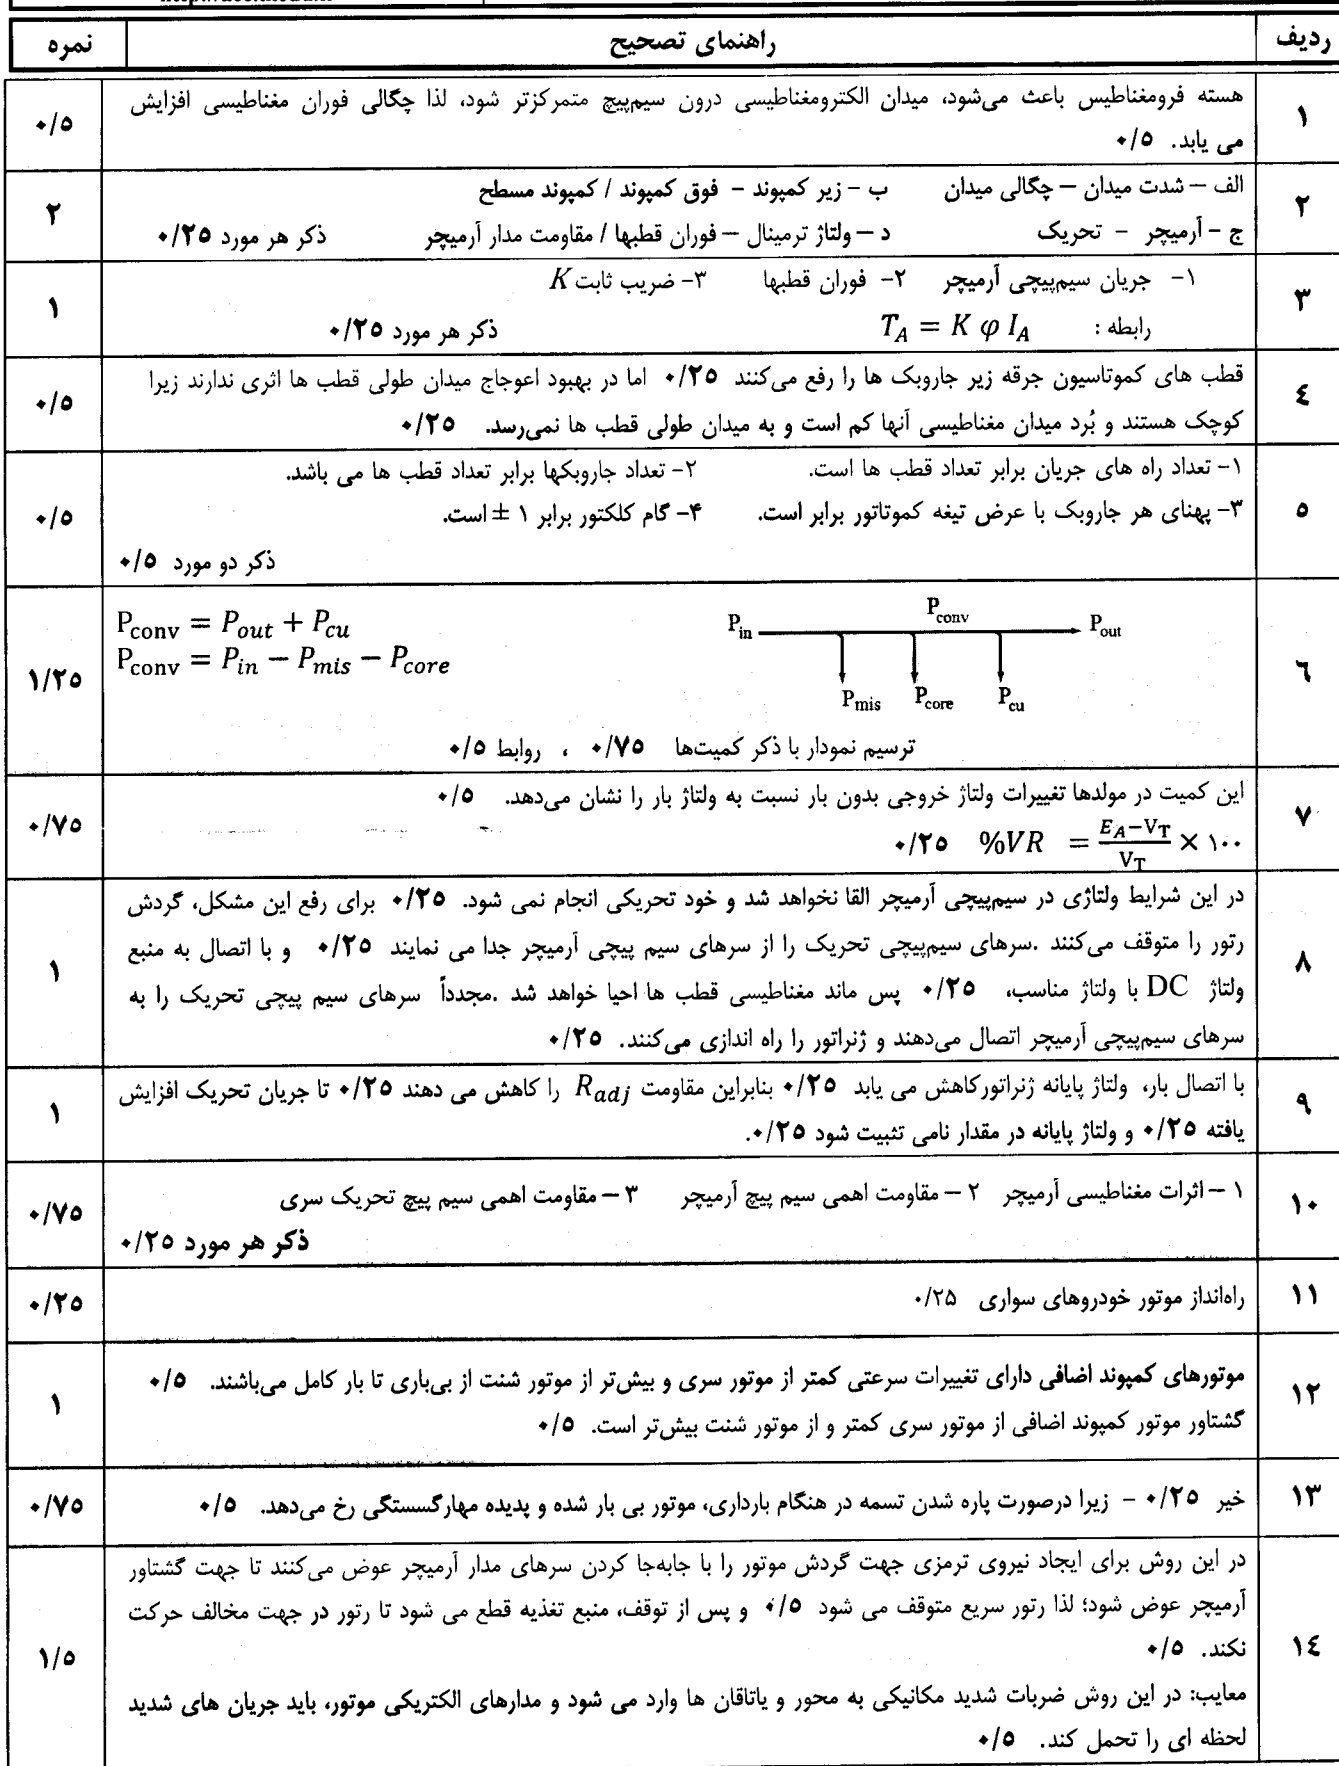 ردیف راهنمای تصحیح نمره
۱ هسته فرومغناطیس باعث می‌شود، میدان الکترومغناطیسی درون سیم‌پیچ متمرکزتر شود، لذا چگالی فوران مغناطیسی افزایش ۰/۵
می یابد. ۰/۵
۲ الف – شدت میدان – چگالی میدان ب – زیر کمپوند – فوق کمپوند / کمپوند مسطح ۲
ج – آرمیچر – تحریک د – ولتاژ ترمینال – فوران قطبها / مقاومت مدار آرمیچر ذکر هر مورد ۰/۲۵
۳ ۱- جریان سیم‌پیچی آرمیچر ۲- فوران قطبها ۳- ضریب ثابت K ۱
رابطه : T_A = K φ I_A ذکر هر مورد ۰/۲۵
۴ قطب های کموتاسیون جرقه زیر جاروبک ها را رفع می‌کنند ۰/۲۵ اما در بهبود اعوجاج میدان طولی قطب ها اثری ندارند زیرا ۰/۵
کوچک هستند و بُرد میدان مغناطیسی آنها کم است و به میدان طولی قطب ها نمی‌رسد. ۰/۲۵
۱- تعداد راه های جریان برابر تعداد قطب ها است. ۲- تعداد جاروبکها برابر تعداد قطب ها می باشد.
۵ ۳- پهنای هر جاروبک با عرض تیغه کموتاتور برابر است. ۴- گام کلکتور برابر ۱ ± است. ۰/۵
ذکر دو مورد ۰/۵
P_conv = P_out + P_cu
P_conv = P_in − P_mis − P_core
P_in P_conv P_out
P_mis P_core P_cu
۶ ۱/۲۵
ترسیم نمودار با ذکر کمیت‌ها ۰/۷۵ ، روابط ۰/۵
۷ این کمیت در مولدها تغییرات ولتاژ خروجی بدون بار نسبت به ولتاژ بار را نشان می‌دهد. ۰/۵ ۰/۷۵
%VR = (E_A−V_T)/V_T × ۱۰۰ ۰/۲۵
در این شرایط ولتاژی در سیم‌پیچی آرمیچر القا نخواهد شد و خود تحریکی انجام نمی شود. ۰/۲۵ برای رفع این مشکل، گردش
۸ رتور را متوقف می‌کنند .سرهای سیم‌پیچی تحریک را از سرهای سیم پیچی آرمیچر جدا می نمایند ۰/۲۵ و با اتصال به منبع ۱
ولتاژ DC با ولتاژ مناسب، ۰/۲۵ پس ماند مغناطیسی قطب ها احیا خواهد شد .مجدداً سرهای سیم پیچی تحریک را به
سرهای سیم‌پیچی آرمیچر اتصال می‌دهند و ژنراتور را راه اندازی می‌کنند. ۰/۲۵
۹ با اتصال بار، ولتاژ پایانه ژنراتورکاهش می یابد ۰/۲۵ بنابراین مقاومت R_adj را کاهش می دهند ۰/۲۵ تا جریان تحریک افزایش ۱
یافته ۰/۲۵ و ولتاژ پایانه در مقدار نامی تثبیت شود ۰/۲۵.
۱۰ ۱ – اثرات مغناطیسی آرمیچر ۲ – مقاومت اهمی سیم پیچ آرمیچر ۳ – مقاومت اهمی سیم پیچ تحریک سری ۰/۷۵
ذکر هر مورد ۰/۲۵
۱۱ راه‌انداز موتور خودروهای سواری ۰/۲۵ ۰/۲۵
۱۲ موتورهای کمپوند اضافی دارای تغییرات سرعتی کمتر از موتور سری و بیش‌تر از موتور شنت از بی‌باری تا بار کامل می‌باشند. ۰/۵ ۱
گشتاور موتور کمپوند اضافی از موتور سری کمتر و از موتور شنت بیش‌تر است. ۰/۵
۱۳ خیر ۰/۲۵ – زیرا درصورت پاره شدن تسمه در هنگام بارداری، موتور بی بار شده و پدیده مهارگسستگی رخ می‌دهد. ۰/۵ ۰/۷۵
در این روش برای ایجاد نیروی ترمزی جهت گردش موتور را با جابه‌جا کردن سرهای مدار آرمیچر عوض می‌کنند تا جهت گشتاور
آرمیچر عوض شود؛ لذا رتور سریع متوقف می شود ۰/۵ و پس از توقف، منبع تغذیه قطع می شود تا رتور در جهت مخالف حرکت
۱۴ نکند. ۰/۵ ۱/۵
معایب: در این روش ضربات شدید مکانیکی به محور و یاتاقان ها وارد می شود و مدارهای الکتریکی موتور، باید جریان های شدید
لحظه ای را تحمل کند. ۰/۵